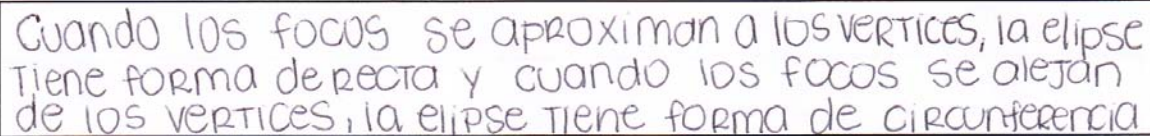 Cuando los focos se aproximan a los vertices, la elipse
tiene forma de recta y cuando los focos se alejan
de los vertices, la elipse tiene forma de circunferencia